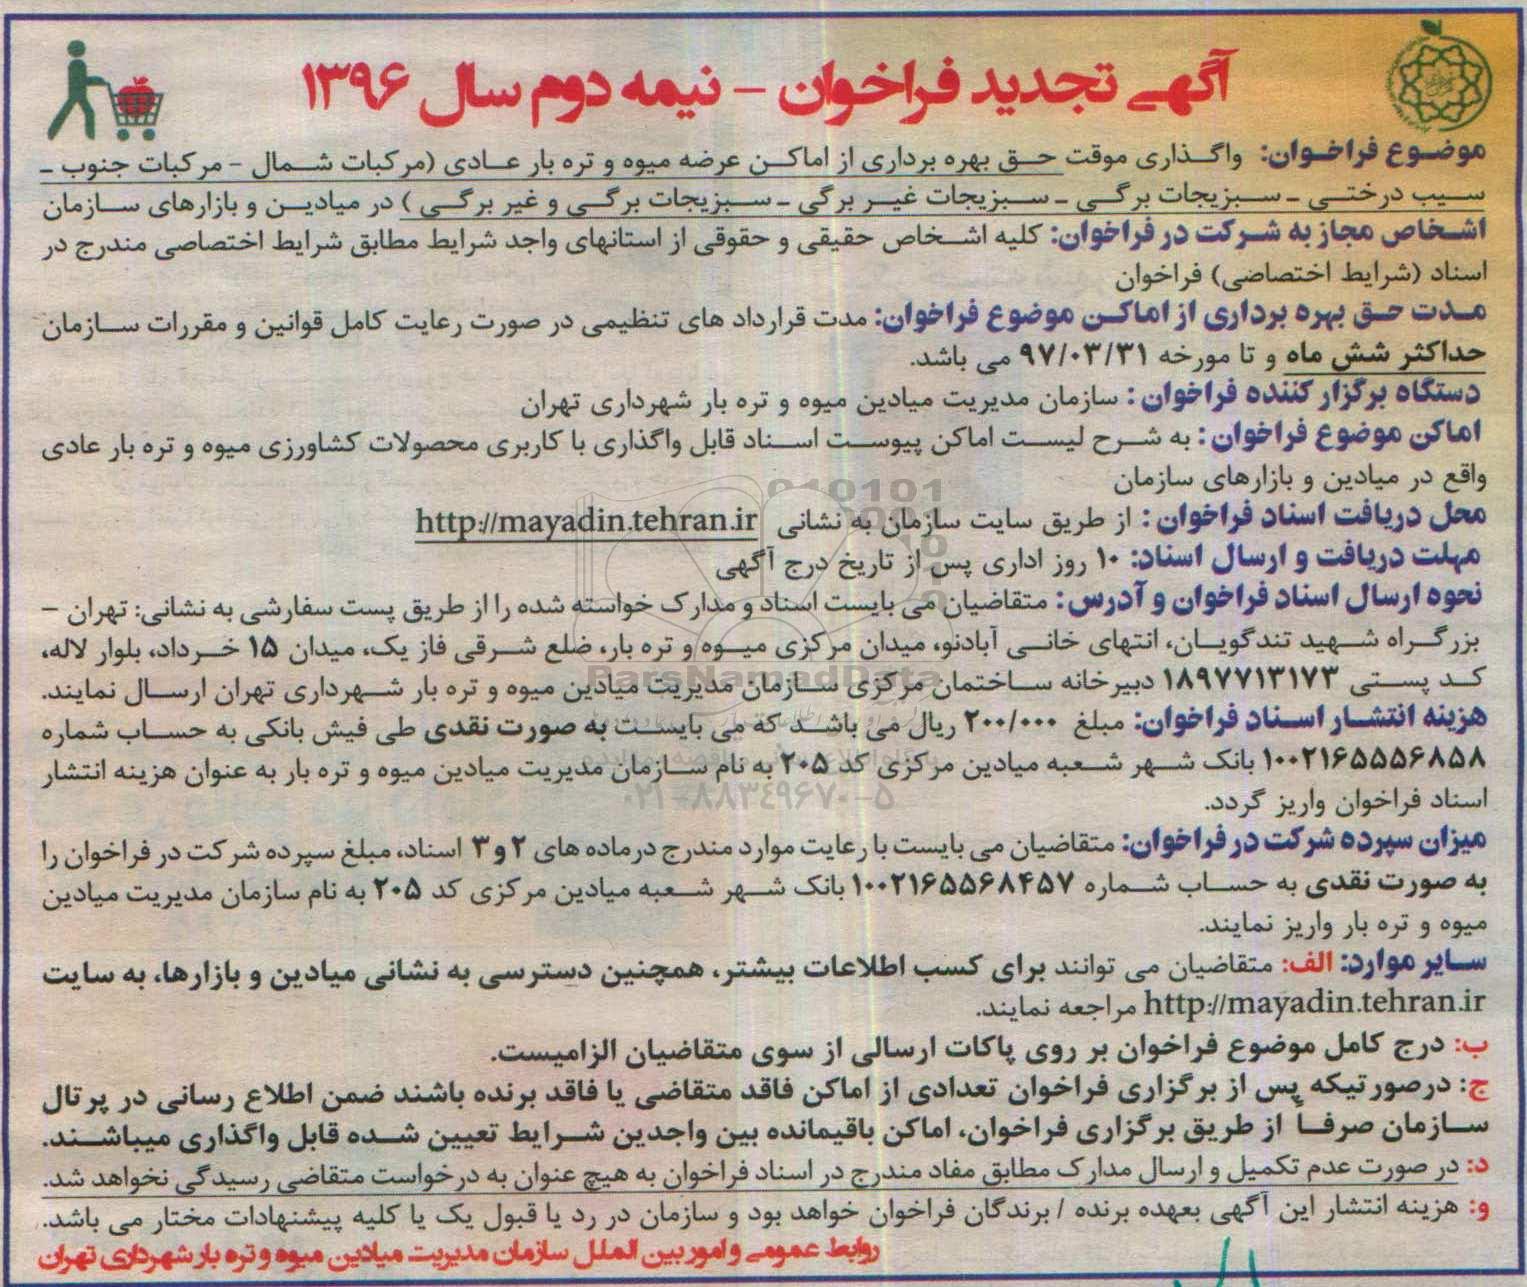 آگهی تجدید فراخوان – نیمه دوم سال ۱۳۹۶
موضوع فراخوان: واگذاری موقت حق بهره برداری از اماکن عرضه میوه و تره بار عادی (مرکبات شمال - مرکبات جنوب ـ
سیب درختی ـ سبزیجات برگی ـ سبزیجات غیر برگی ـ سبزیجات برگی و غیر برگی ) در میادین و بازارهای سازمان
اشخاص مجاز به شرکت در فراخوان: کلیه اشخاص حقیقی و حقوقی از استانهای واجد شرایط مطابق شرایط اختصاصی مندرج در
اسناد (شرایط اختصاصی) فراخوان
مدت حق بهره برداری از اماکن موضوع فراخوان: مدت قرارداد های تنظیمی در صورت رعایت کامل قوانین و مقررات سازمان
حداکثر شش ماه و تا مورخه ۹۷/۰۳/۳۱ می باشد.
دستگاه برگزار کننده فراخوان : سازمان مدیریت میادین میوه و تره بار شهرداری تهران
اماکن موضوع فراخوان : به شرح لیست اماکن پیوست اسناد قابل واگذاری با کاربری محصولات کشاورزی میوه و تره بار عادی
واقع در میادین و بازارهای سازمان
محل دریافت اسناد فراخوان : از طریق سایت سازمان به نشانی http://mayadin.tehran.ir
مهلت دریافت و ارسال اسناد: ۱۰ روز اداری پس از تاریخ درج آگهی
نحوه ارسال اسناد فراخوان و آدرس : متقاضیان می بایست اسناد و مدارک خواسته شده را از طریق پست سفارشی به نشانی: تهران –
بزرگراه شهید تندگویان، انتهای خانی آبادنو، میدان مرکزی میوه و تره بار، ضلع شرقی فاز یک، میدان ۱۵ خرداد، بلوار لاله،
کد پستی ۱۸۹۷۷۱۳۱۷۳ دبیرخانه ساختمان مرکزی سازمان مدیریت میادین میوه و تره بار شهرداری تهران ارسال نمایند.
هزینه انتشار اسناد فراخوان: مبلغ ۲۰۰/۰۰۰ ریال می باشد که می بایست به صورت نقدی طی فیش بانکی به حساب شماره
۱۰۰۲۱۶۵۵۵۶۸۵۸ بانک شهر شعبه میادین مرکزی کد ۲۰۵ به نام سازمان مدیریت میادین میوه و تره بار به عنوان هزینه انتشار
اسناد فراخوان واریز گردد.
میزان سپرده شرکت در فراخوان: متقاضیان می بایست با رعایت موارد مندرج درماده های ۲ و ۳ اسناد، مبلغ سپرده شرکت در فراخوان را
به صورت نقدی به حساب شماره ۱۰۰۲۱۶۵۵۶۸۴۵۷ بانک شهر شعبه میادین مرکزی کد ۲۰۵ به نام سازمان مدیریت میادین
میوه و تره بار واریز نمایند.
سایر موارد: الف: متقاضیان می توانند برای کسب اطلاعات بیشتر، همچنین دسترسی به نشانی میادین و بازارها، به سایت
http://mayadin.tehran.ir مراجعه نمایند.
ب: درج کامل موضوع فراخوان بر روی پاکات ارسالی از سوی متقاضیان الزامیست.
ج: درصورتیکه پس از برگزاری فراخوان تعدادی از اماکن فاقد متقاضی یا فاقد برنده باشند ضمن اطلاع رسانی در پرتال
سازمان صرفاً از طریق برگزاری فراخوان، اماکن باقیمانده بین واجدین شرایط تعیین شده قابل واگذاری میباشند.
د: در صورت عدم تکمیل و ارسال مدارک مطابق مفاد مندرج در اسناد فراخوان به هیچ عنوان به درخواست متقاضی رسیدگی نخواهد شد.
و: هزینه انتشار این آگهی بعهده برنده / برندگان فراخوان خواهد بود و سازمان در رد یا قبول یک یا کلیه پیشنهادات مختار می باشد.
روابط عمومی و امور بین الملل سازمان مدیریت میادین میوه و تره بار شهرداری تهران
ParsNamadData
۰۲۱-۸۸۳۴۹۶۷۰-۵